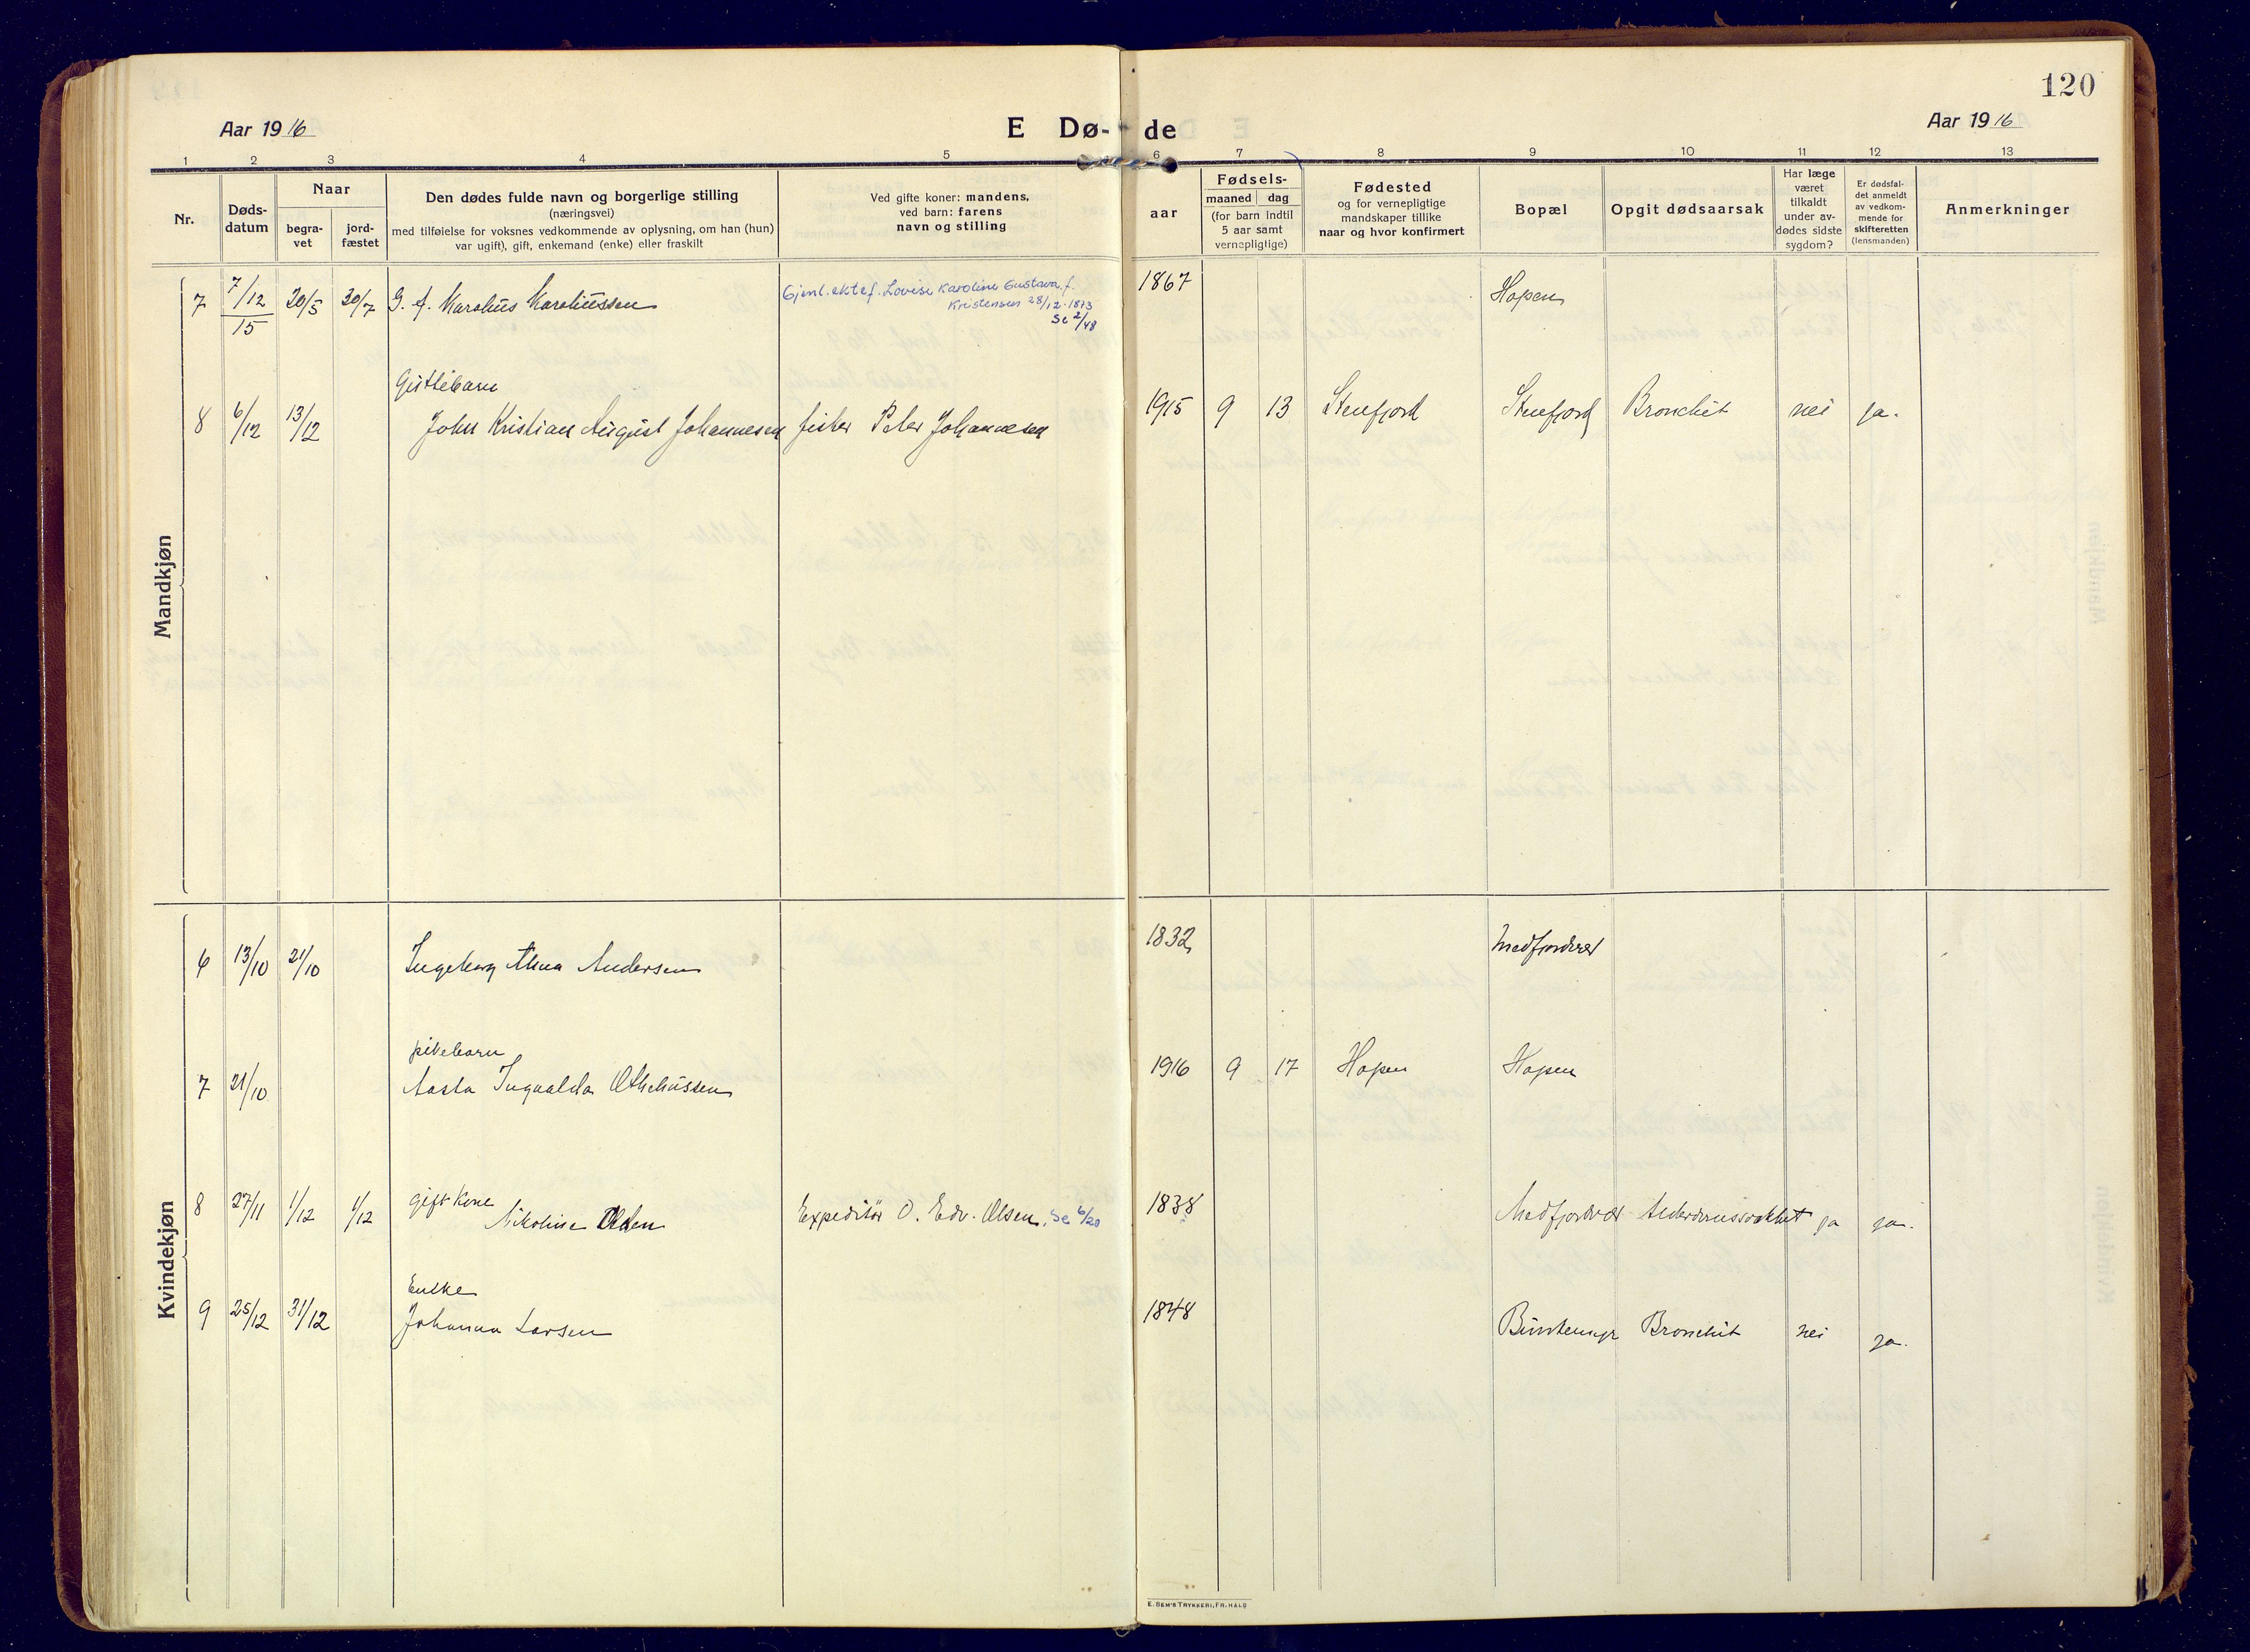 120
Aar 1916
E Dø- de
Aar 1916
1 2 3 4 5 6 7 8 9 10 11 12 13
Nr.
Døds-
datum
Naar
begra-
vet
jord-
fæstet
Den dødes fulde navn og borgerlige stilling
(næringsvei)
med tilføielse for voksnes vedkommende av oplysning, om han (hun)
var ugift), gift, enkemand (enke) eller fraskilt
Ved gifte koner: mandens,
ved barn: farens
navn og stilling
aar
Fødsels-
maaned dag
(for barn indtil
5 aar samt
vernepligtige)
Fødested
og for vernepligtige
mandskaper tillike
naar og hvor konfirmert
Bopæl
Opgit dødsaarsak
Har læge
været
tilkaldt
under av-
dødes sidste
sygdom?
Er dødsfal-
det anmeldt
av vedkom-
mende for
skifteretten
(lensmanden)
Anmerkninger
Mandkjøn
7 7/12 15 20/5 30/7 G. f. Karolius Karoliussen
Gjenl. ektef. Lovise Karoline Gustava f.
Kristensen 28/12-1873
Se 2/48
1867 Hopen
Guttebarn
8 6/12 13/12 John Kristian August Johannesen fisker Peter Johannesen 1915 9 13 Stenfjord Stenfjord Bronchit nei ja.
Kvindekjøn
6 13/10 21/10 Ingeborg Anna Andersen 1832 Medfjordvær
pikebarn
7 21/10 Aasta Ingvalda Otheliussen 1916 9 17 Hopen Hopen
gift kone
8 27/11 1/12 1/12 Nikoline Olsen Expeditør O. Edv. Olsen. Se 6/20 1838 Medfjordvær ja ja.
Enke
9 25/12 31/12 Johanna Larsen 1848 Bronchit nei ja.
E. SEM'S TRYKKERI, FR.HALD